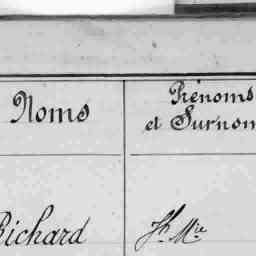 Noms
Prénoms
et Surnom
Richard
Jh Mie